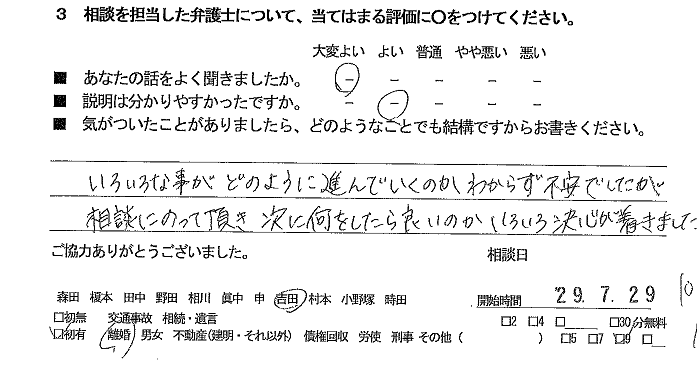 3 相談を担当した弁護士について、当てはまる評価に〇をつけてください。
大変よい よい 普通 やや悪い 悪い
■ あなたの話をよく聞きましたか。 － － － － －
■ 説明は分かりやすかったですか。 － － － － －
■ 気がついたことがありましたら、どのようなことでも結構ですからお書きください。
いろいろな事が どのように進んでいくのか わからず 不安でしたが
相談にのって頂き 次に何をしたら良いのか いろいろ 決心が着きました
ご協力ありがとうございました。 相談日
森田 榎本 田中 野田 相川 眞中 申 吉田 村本 小野塚 時田 開始時間 29. 7. 29
□初無 交通事故 相続・遺言 □2 □4 □ □30分無料
□初有 離婚 男女 不動産(建明・それ以外) 債権回収 労使 刑事 その他 ( ) □5 □7 □9 □